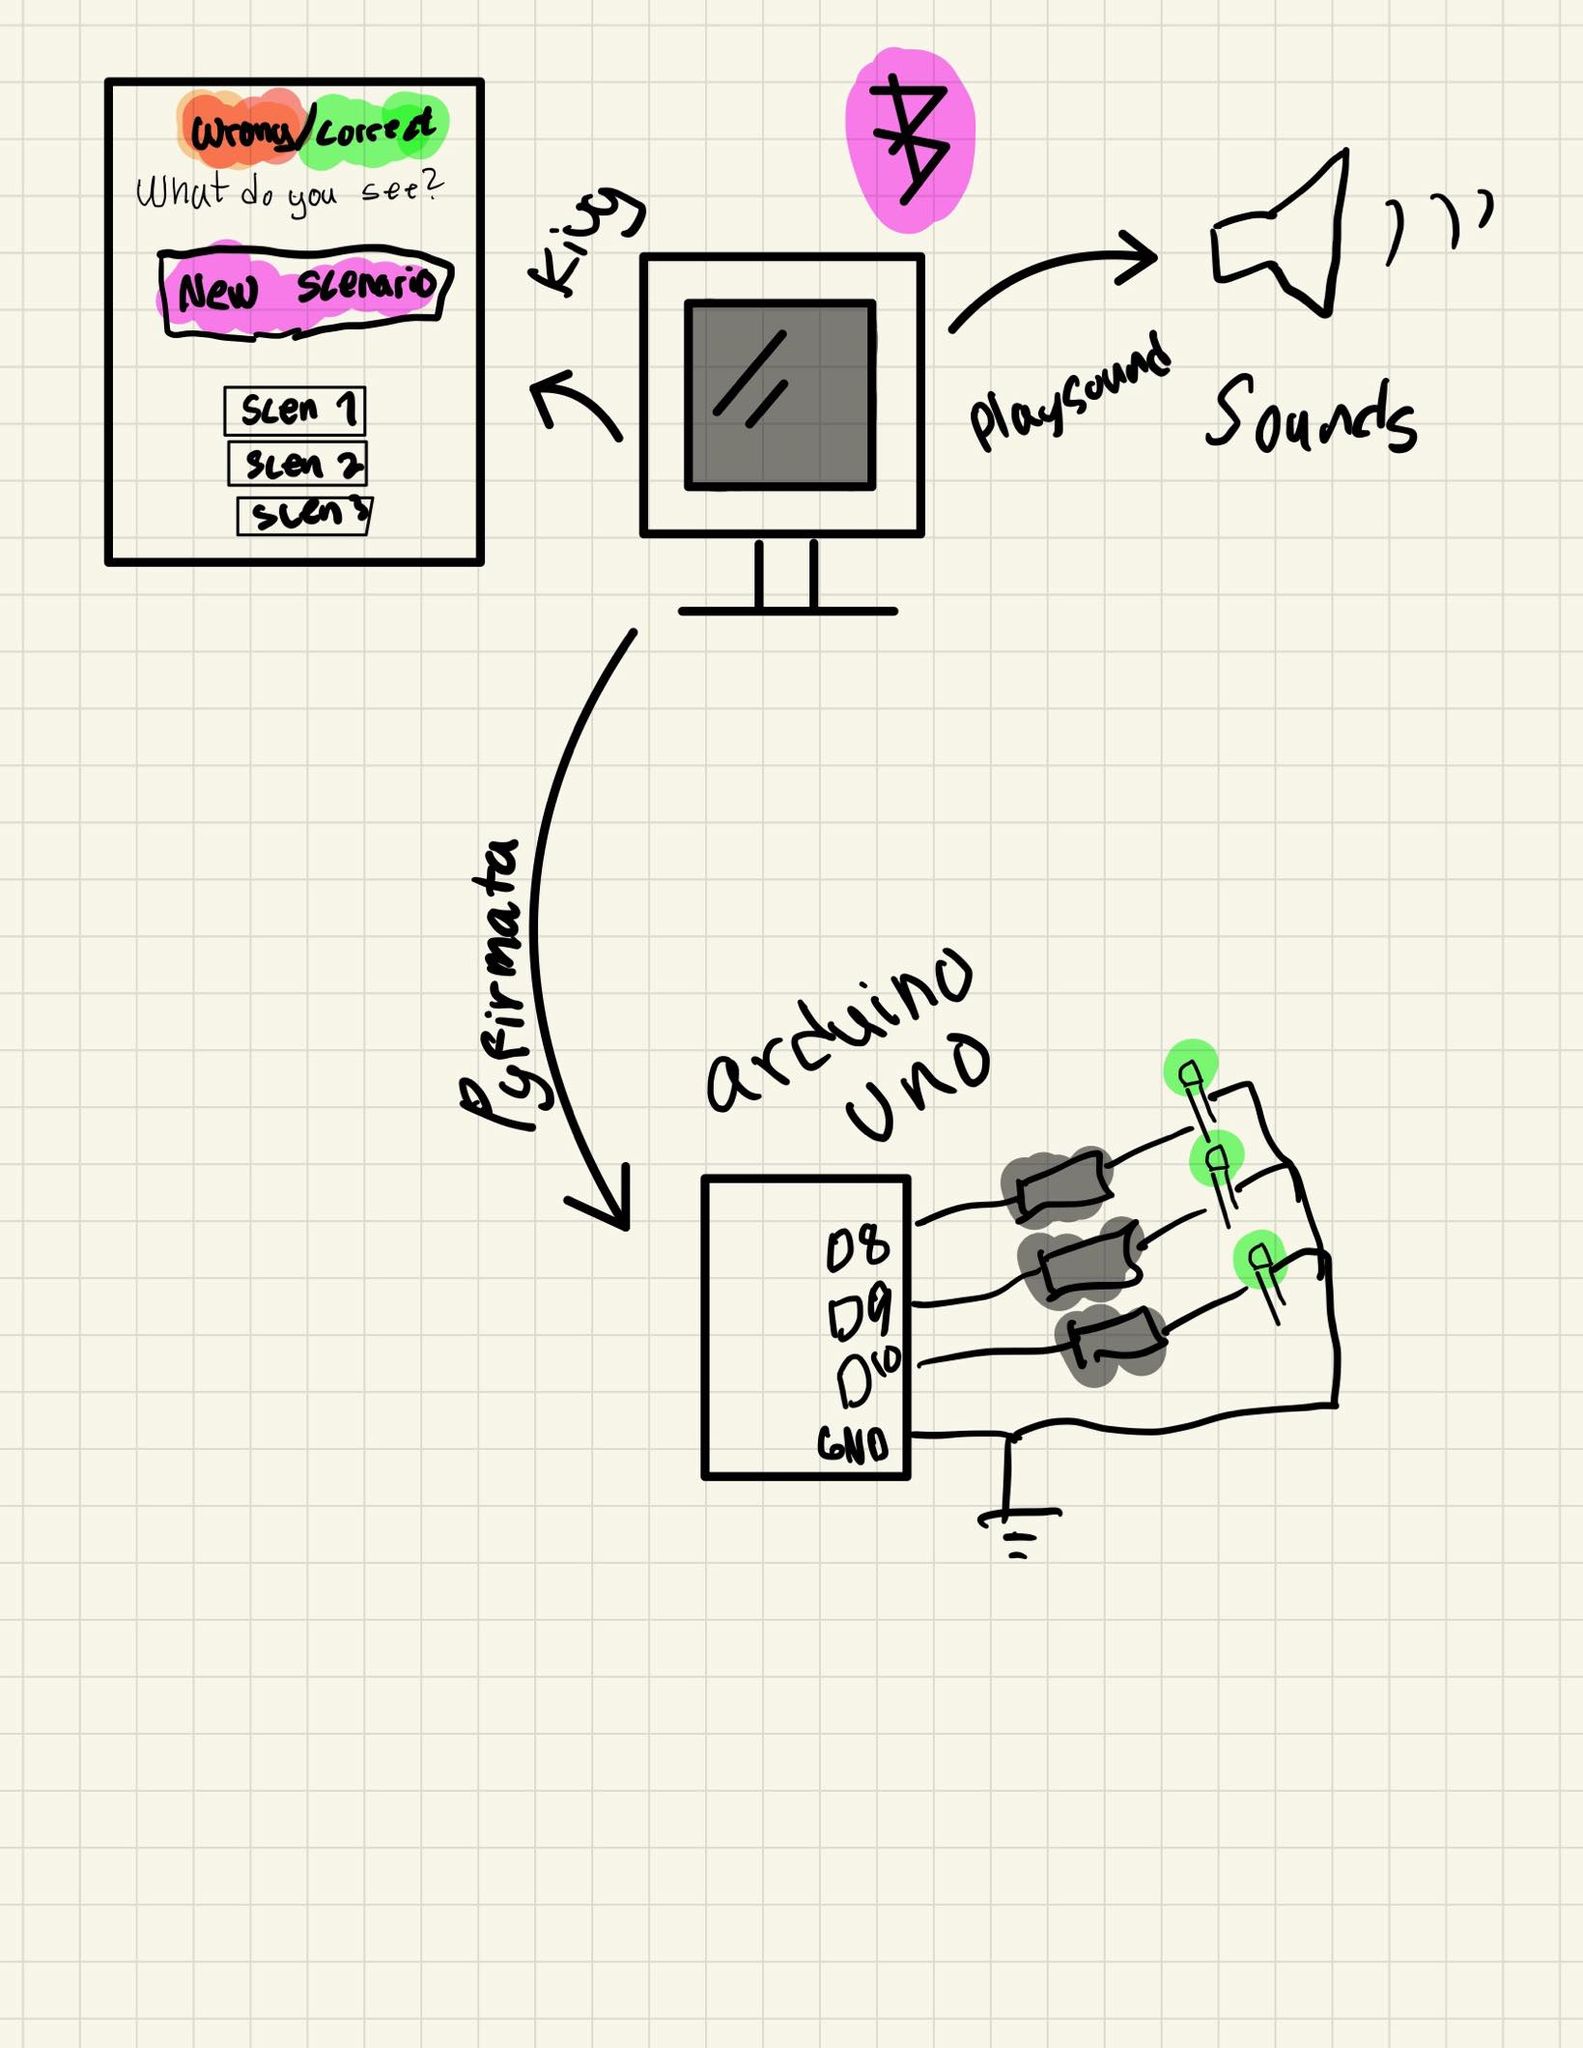 Wrong/Correct
What do you see?
New Scenario
Scen 1
Scen 2
Scen 3
Kivy
Playsound
Sounds
Pyfirmata
arduino
uno
D8
D9
D10
GND